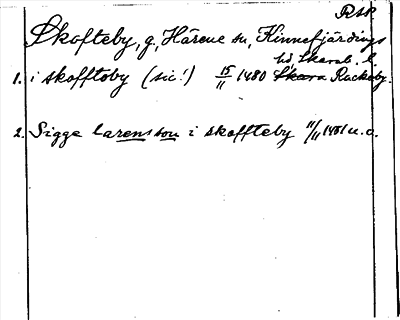 RAP.
Skofteby, g, Härene sn, Kinnefjärdings
hd, Skarab. l.
1. i skofftoby (sic!) 15/11 1480 Skara Rackeby.
2. Sigge larensson i skoffteby 11/11 1481 u. o.